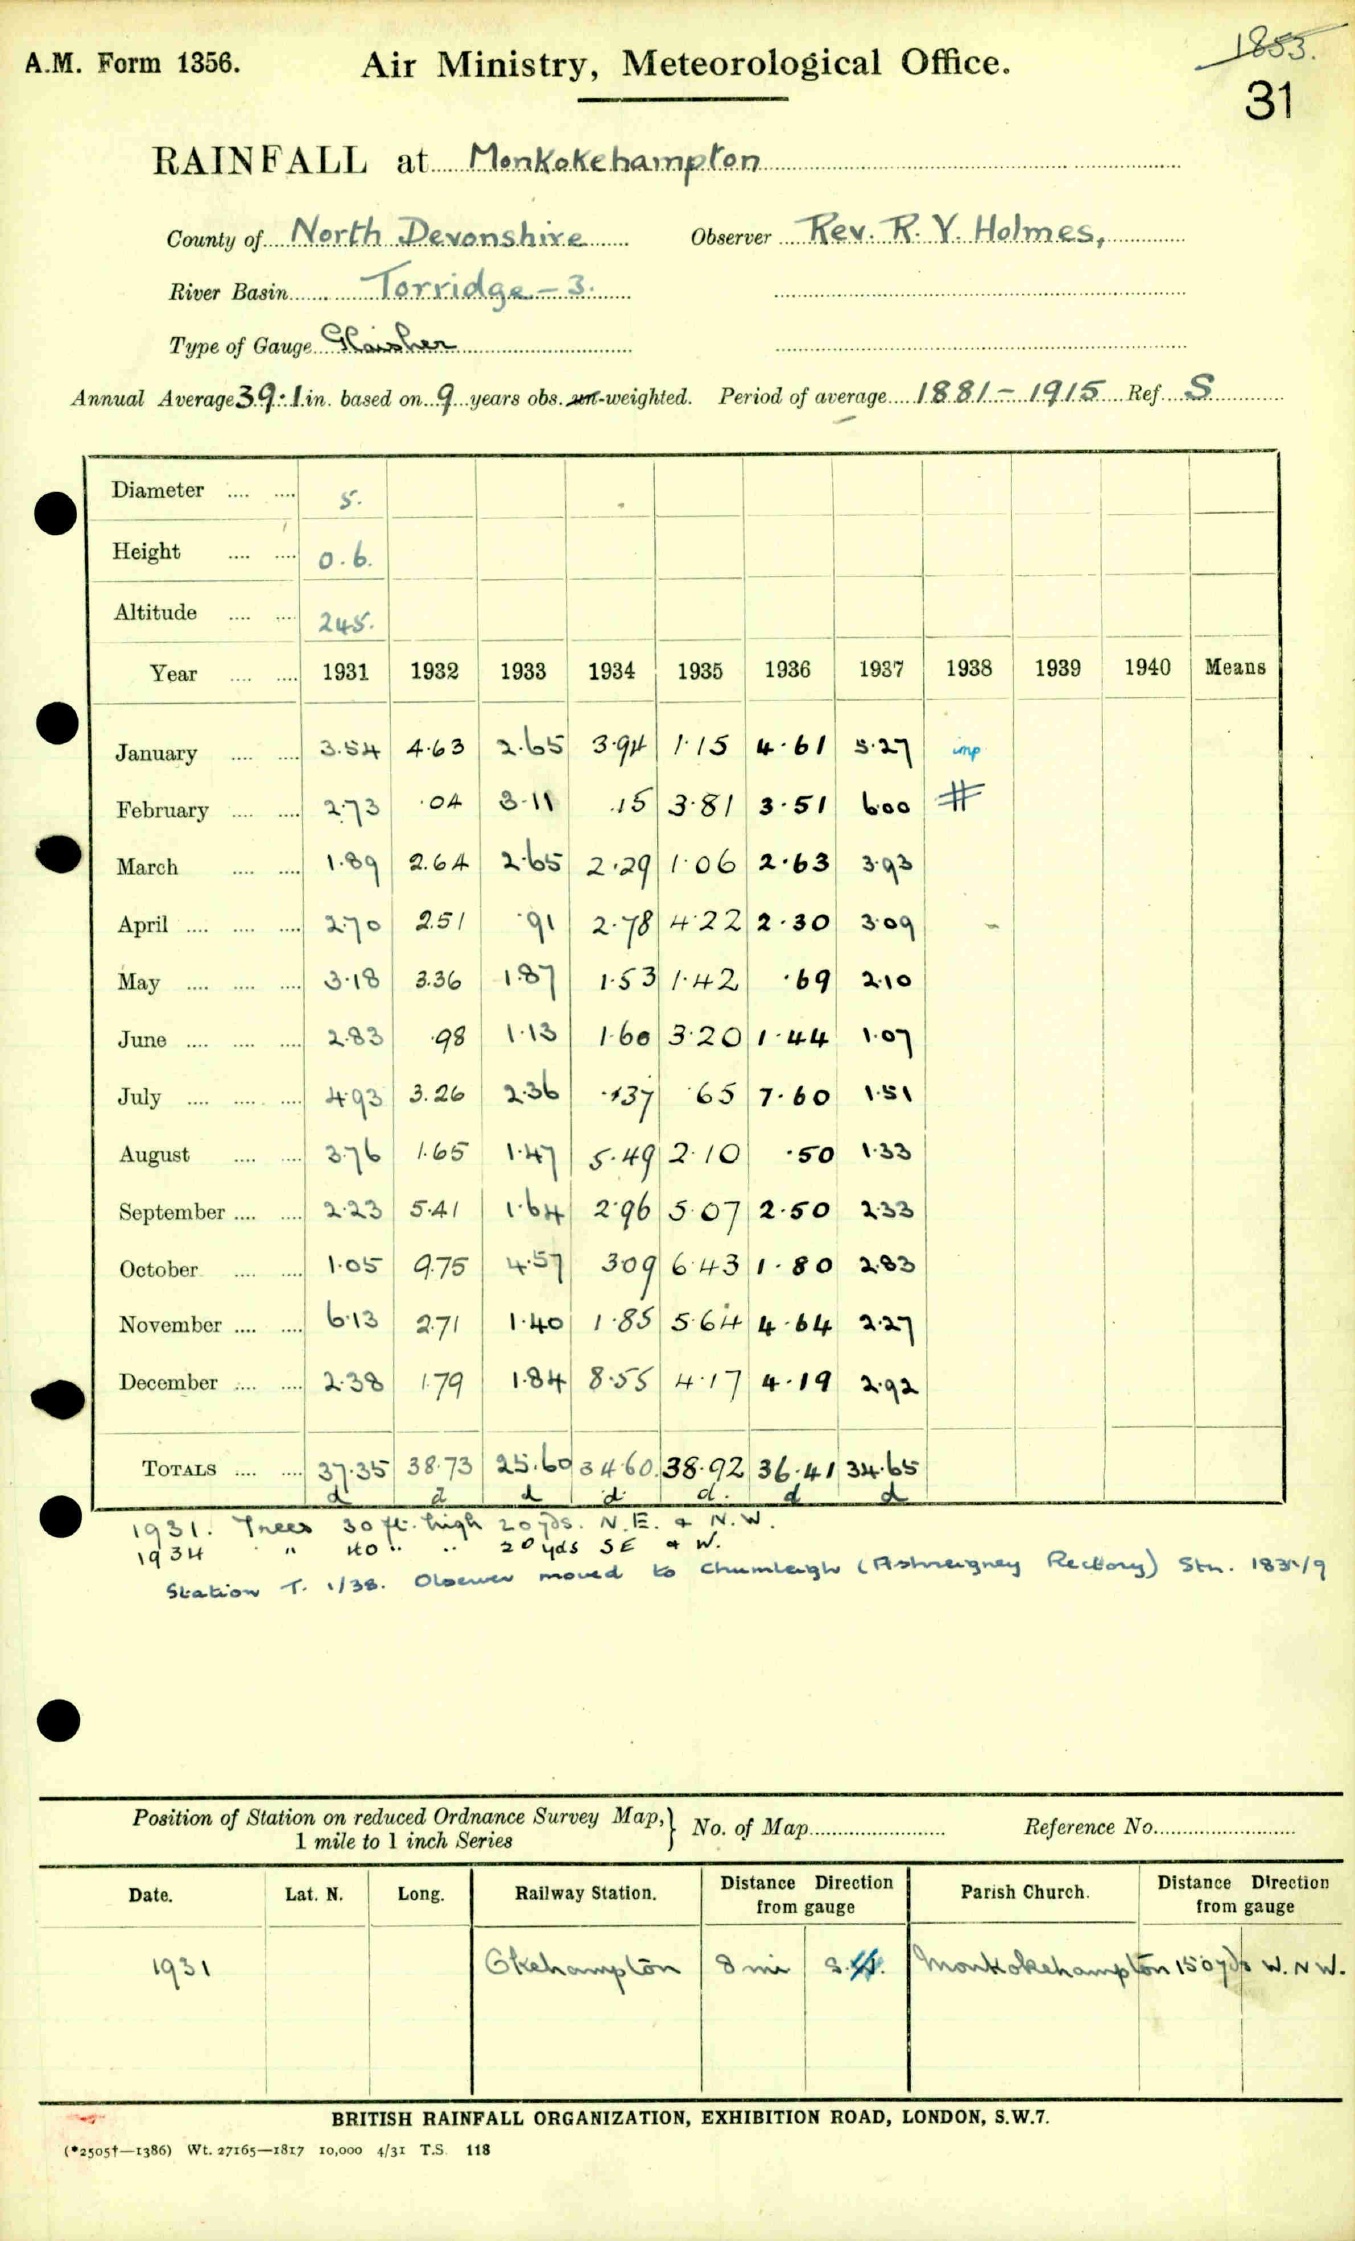 A.M. Form 1356.
Air Ministry, Meteorological Office.
1853.
31
RAINFALL at Monkokehampton
County of North Devonshire Observer Rev. R. V. Holmes,
River Basin Torridge - 3.
Type of Gauge Glaisher
Annual Average 39.1 in. based on 9 years obs. un-weighted. Period of average 1881 - 1915 Ref. S
Diameter 5.
Height 0.6.
Altitude 245.
Year 1931 1932 1933 1934 1935 1936 1937 1938 1939 1940 Means
January 3.54 4.63 2.65 3.94 1.15 4.61 5.27 imp
February 2.73 .04 3.11 .15 3.81 3.51 6.00 #
March 1.89 2.64 2.65 2.29 1.06 2.63 3.93
April 2.70 2.51 .91 2.78 4.22 2.30 3.09
May 3.18 3.36 1.87 1.53 1.42 .69 2.10
June 2.83 .98 1.13 1.60 3.20 1.44 1.07
July 4.93 3.26 2.36 .37 .65 7.60 1.51
August 3.76 1.65 1.47 5.49 2.10 .50 1.33
September 2.23 5.41 1.64 2.96 5.07 2.50 2.33
October 1.05 9.75 4.57 3.09 6.43 1.80 2.83
November 6.13 2.71 1.40 1.85 5.64 4.64 2.27
December 2.38 1.79 1.84 8.55 4.17 4.19 2.92
TOTALS 37.35 38.73 25.60 34.60 38.92 36.41 34.65
d d d d d. d d
1931. Trees 30 ft. high 20 yds. N.E. & N.W.
1934 " 40 " " 20 yds SE & W.
Station T. 1/38. Observer moved to Chumleigh (Ashreigney Rectory) Stn.
Position of Station on reduced Ordnance Survey Map,} No. of Map Reference No.
1 mile to 1 inch Series
Date. Lat. N. Long. Railway Station. Distance Direction from gauge Parish Church. Distance Direction from gauge
1931 Okehampton 8 mi S. Monkokehampton 150 yds W.N.W.
BRITISH RAINFALL ORGANIZATION, EXHIBITION ROAD, LONDON, S.W.7.
(*2505†—1386) Wt. 27165—1817 10,000 4/31 T.S. 118